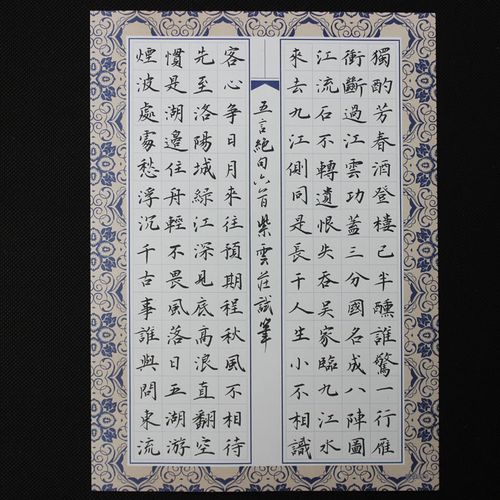 獨酌芳春酒登樓已半醺誰驚一行雁
衝斷過江雲功蓋三分國名成八陣圖
江流石不轉遺恨失吞吳家臨九江水
來去九江側同是長干人生小不相識
五言絕句六首紫雲莊試筆
客心爭日月來往預期程秋風不相待
先至洛陽城綠江深見底高浪直翻空
慣是湖邊住舟輕不畏風落日五湖游
煙波處處愁浮沉千古事誰與問東流